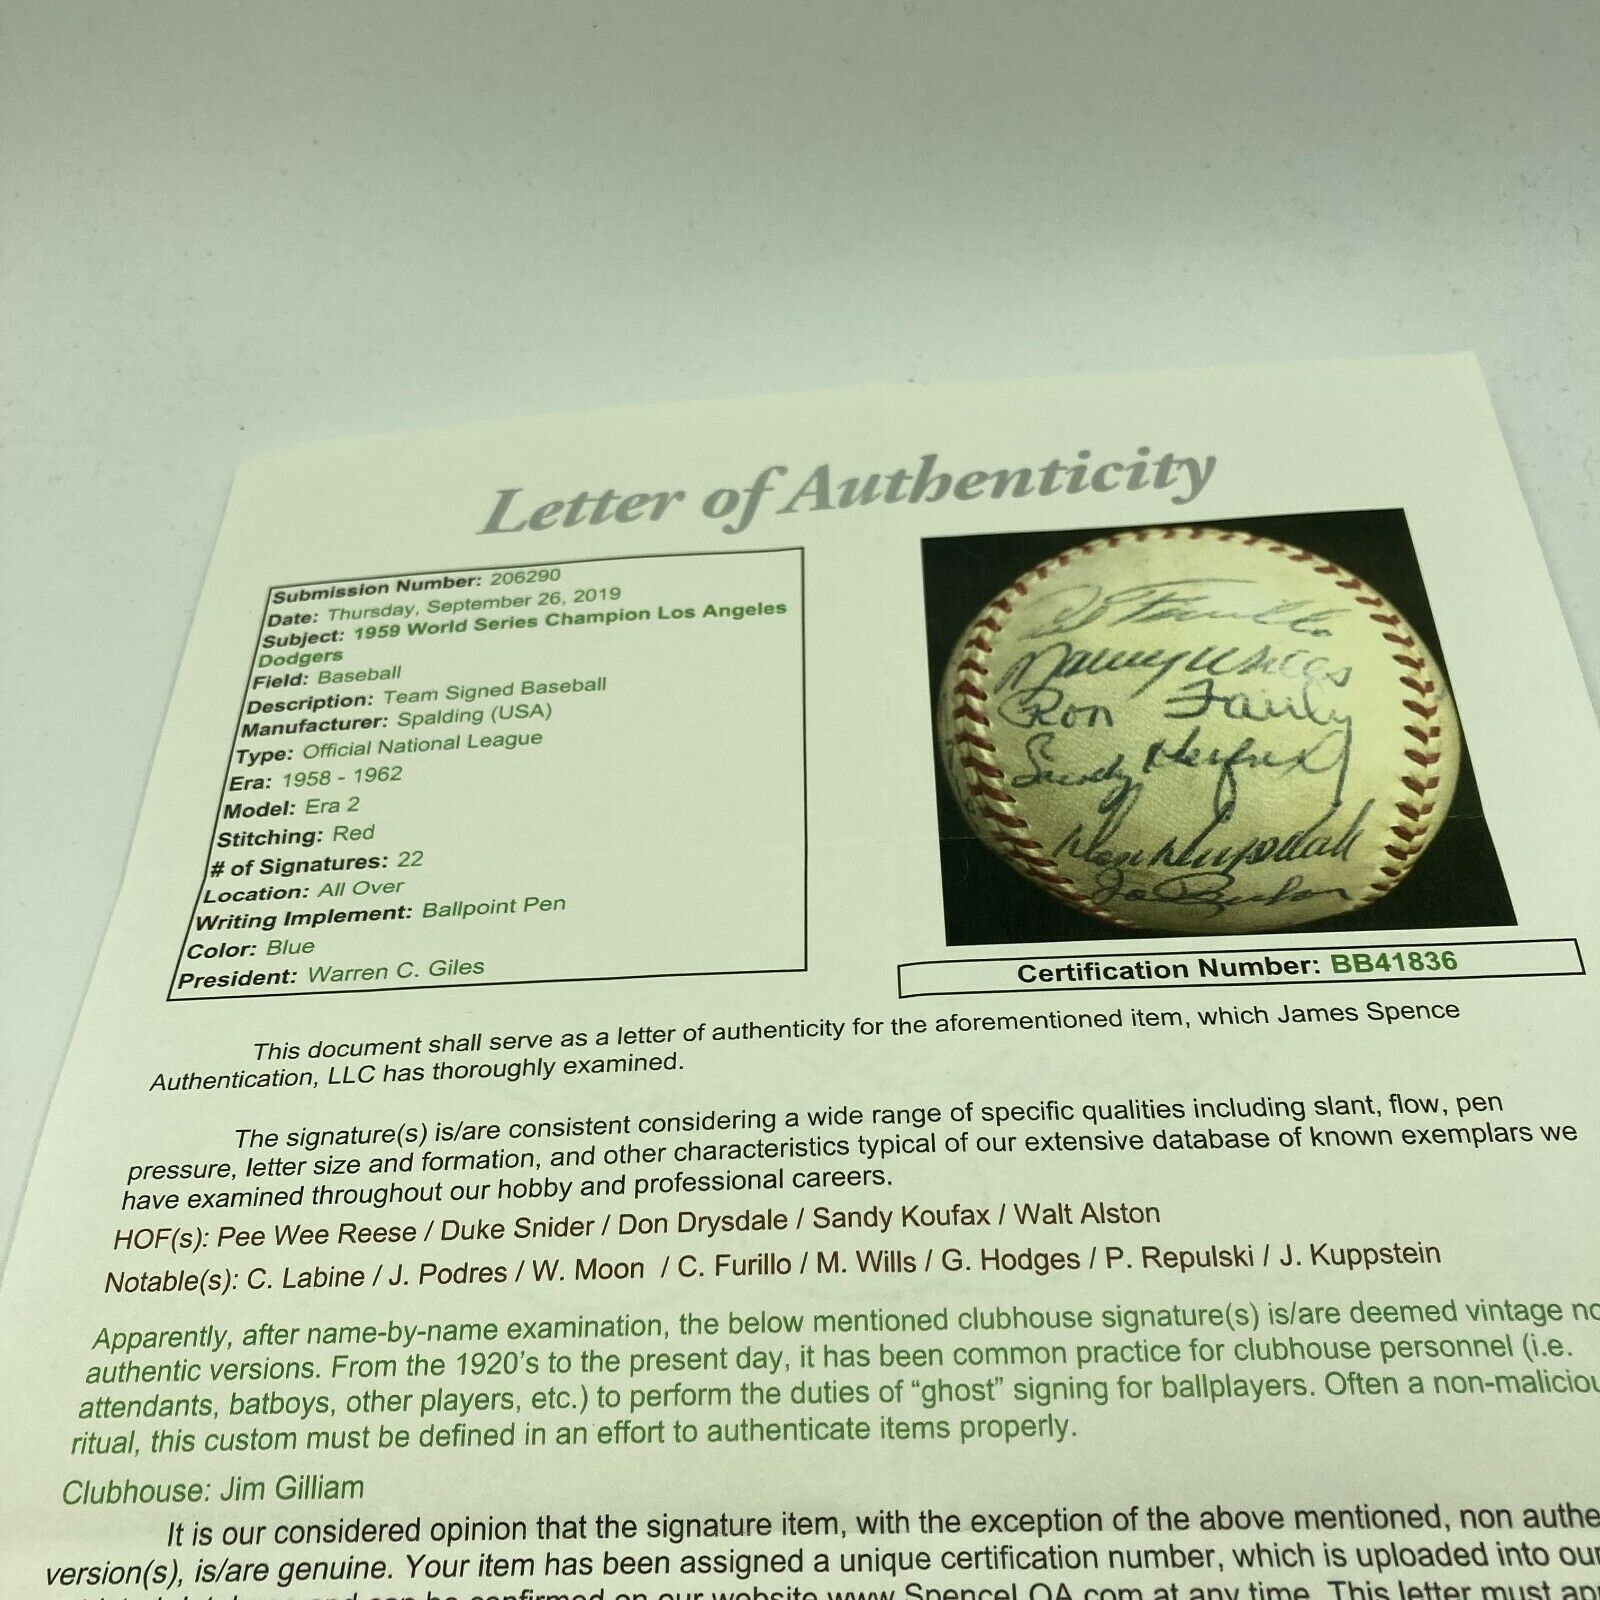 Letter of Authenticity
Submission Number: 206290
Date: Thursday, September 26, 2019
Subject: 1959 World Series Champion Los Angeles
Dodgers
Field: Baseball
Description: Team Signed Baseball
Manufacturer: Spalding (USA)
Type: Official National League
Era: 1958 - 1962
Model: Era 2
Stitching: Red
# of Signatures: 22
Location: All Over
Writing Implement: Ballpoint Pen
Color: Blue
President: Warren C. Giles
C Furillo
Maury Wills
Ron Fairly
Sandy Koufax
Don Drysdale
Joe
Certification Number: BB41836
This document shall serve as a letter of authenticity for the aforementioned item, which James Spence
Authentication, LLC has thoroughly examined.
The signature(s) is/are consistent considering a wide range of specific qualities including slant, flow, pen
pressure, letter size and formation, and other characteristics typical of our extensive database of known exemplars we
have examined throughout our hobby and professional careers.
HOF(s): Pee Wee Reese / Duke Snider / Don Drysdale / Sandy Koufax / Walt Alston
Notable(s): C. Labine / J. Podres / W. Moon / C. Furillo / M. Wills / G. Hodges / P. Repulski / J. Kuppstein
Apparently, after name-by-name examination, the below mentioned clubhouse signature(s) is/are deemed vintage no
authentic versions. From the 1920's to the present day, it has been common practice for clubhouse personnel (i.e.
attendants, batboys, other players, etc.) to perform the duties of "ghost" signing for ballplayers. Often a non-maliciou
ritual, this custom must be defined in an effort to authenticate items properly.
Clubhouse: Jim Gilliam
It is our considered opinion that the signature item, with the exception of the above mentioned, non authe
version(s), is/are genuine. Your item has been assigned a unique certification number, which is uploaded into our
and can be confirmed on our website www.SpenceLOA.com at any time. This letter must